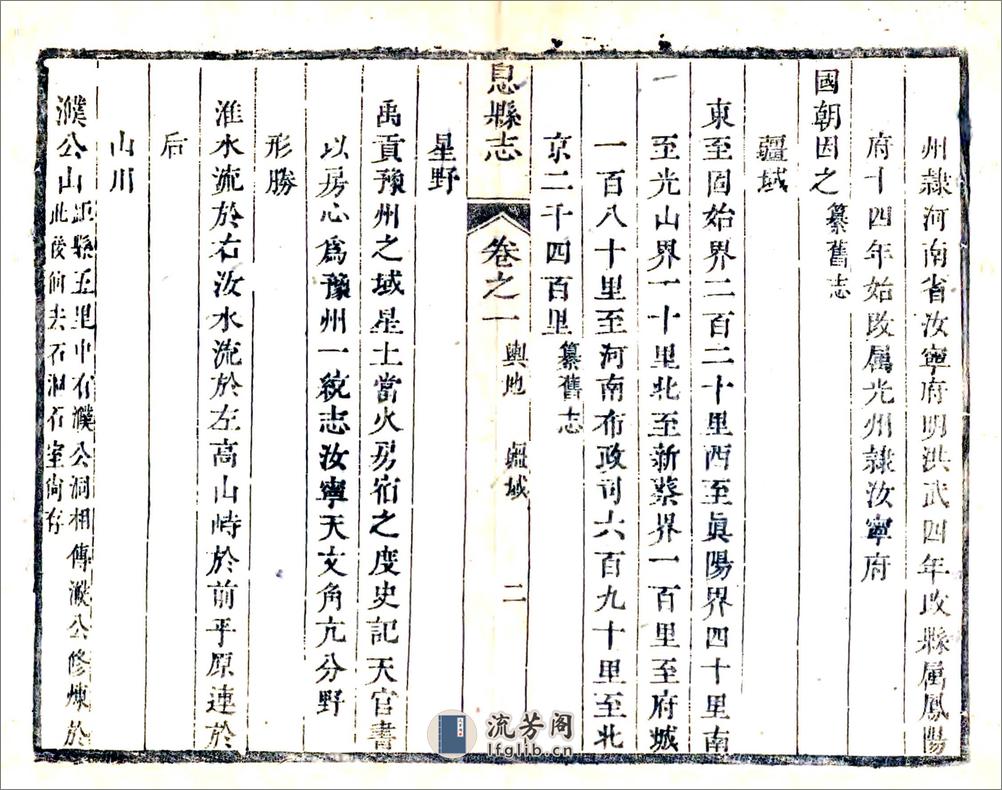 州隸河南省汝寧府明洪武四年改縣屬鳳陽
府十四年始改屬光州隸汝寧府
國朝因之 纂舊志
疆域
東至固始界二百二十里西至眞陽界四十里南
至光山界一十里北至新蔡界一百里至府城
一百八十里至河南布政司六百九十里至北
京二千四百里 纂舊志
息縣志 卷之一 輿地 疆域 二
星野
禹貢豫州之域星土當火房宿之度史記天官書
以房心爲豫州一統志汝寧天文角亢分野
形勝
淮水流於右汝水流於左高山峙於前平原連於
后
山川
濮公山 距縣五里中有濮公洞相傳濮公修煉於
此後仙去石洞石室尙存
流芳阁
lfglib.cn